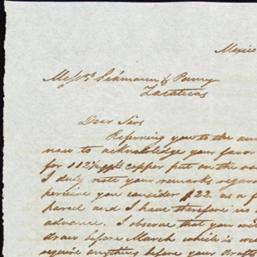 Mexico
Messrs. Sehmann & Penny
Zacatecas
Dear Sirs
Referring you to the an
now to acknowledge your favor
for 112 copper put on the
I duly note your remarks regard
perceive you consider $22. as a f
parcel and I have therefore no
advance. I observe that you wi
draw before March which is we
require anything before your draft